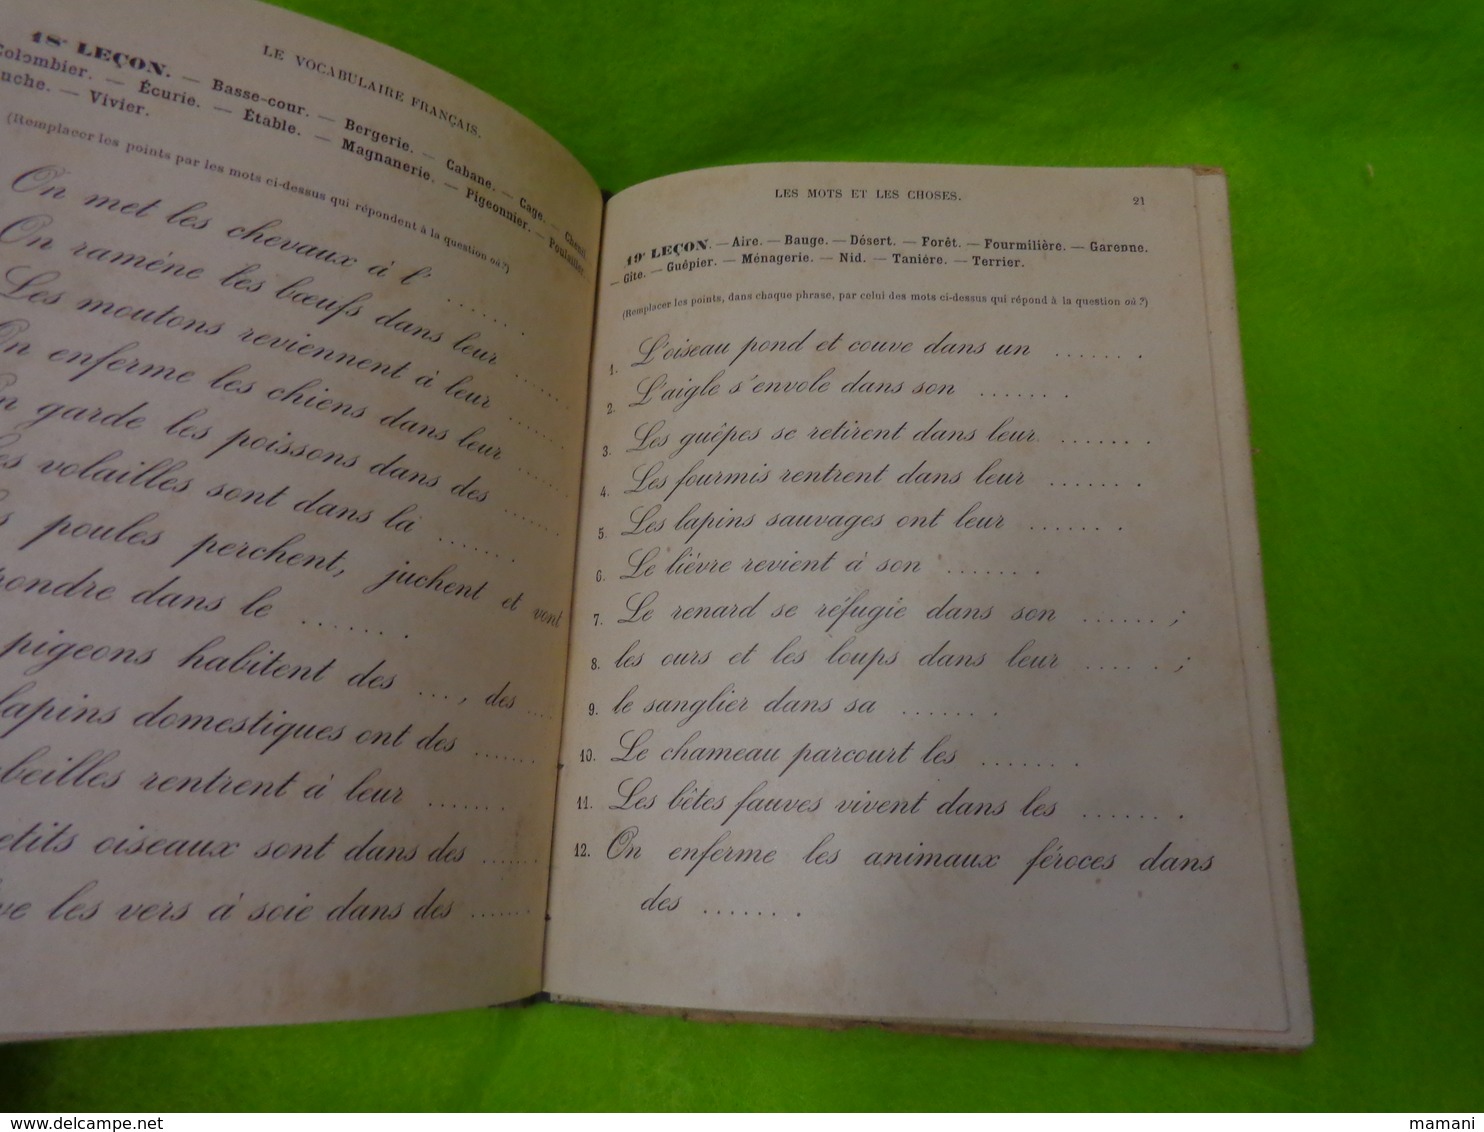 LE VOCABULAIRE FRANÇAIS.
18e LEÇON. — Basse-cour. — Bergerie. — Cabane. — Cage. — Chenil.
Colombier. — Écurie. — Étable. — Magnanerie. — Pigeonnier. — Poulailler.
— Vivier.
(Remplacer les points par les mots ci-dessus qui répondent à la question où?)
On met les chevaux à l' .......
On ramène les bœufs dans leur ......
Les moutons reviennent à leur .......
On enferme les chiens dans leur .......
garde les poissons dans des .......
volailles sont dans la .......
poules perchent, juchent et vont
dans le .......
pigeons habitent des ..., des ....
lapins domestiques ont des ......
rentrent à leur .......
oiseaux sont dans des ......
les vers à soie dans des ......
LES MOTS ET LES CHOSES. 21
19e LEÇON. — Aire. — Bauge. — Désert. — Forêt. — Fourmilière. — Garenne.
— Gîte. — Guêpier. — Ménagerie. — Nid. — Tanière. — Terrier.
(Remplacer les points, dans chaque phrase, par celui des mots ci-dessus qui répond à la question où?)
1. L'oiseau pond et couve dans un .......
2. L'aigle s'envole dans son .......
3. Les guêpes se retirent dans leur .......
4. Les fourmis rentrent dans leur .......
5. Les lapins sauvages ont leur .......
6. Le lièvre revient à son .......
7. Le renard se réfugie dans son ...... ;
8. les ours et les loups dans leur ...... ;
9. le sanglier dans sa .......
10. Le chameau parcourt les .......
11. Les bêtes fauves vivent dans les .......
12. On enferme les animaux féroces dans
des .......
www.delcampe.net
mamani